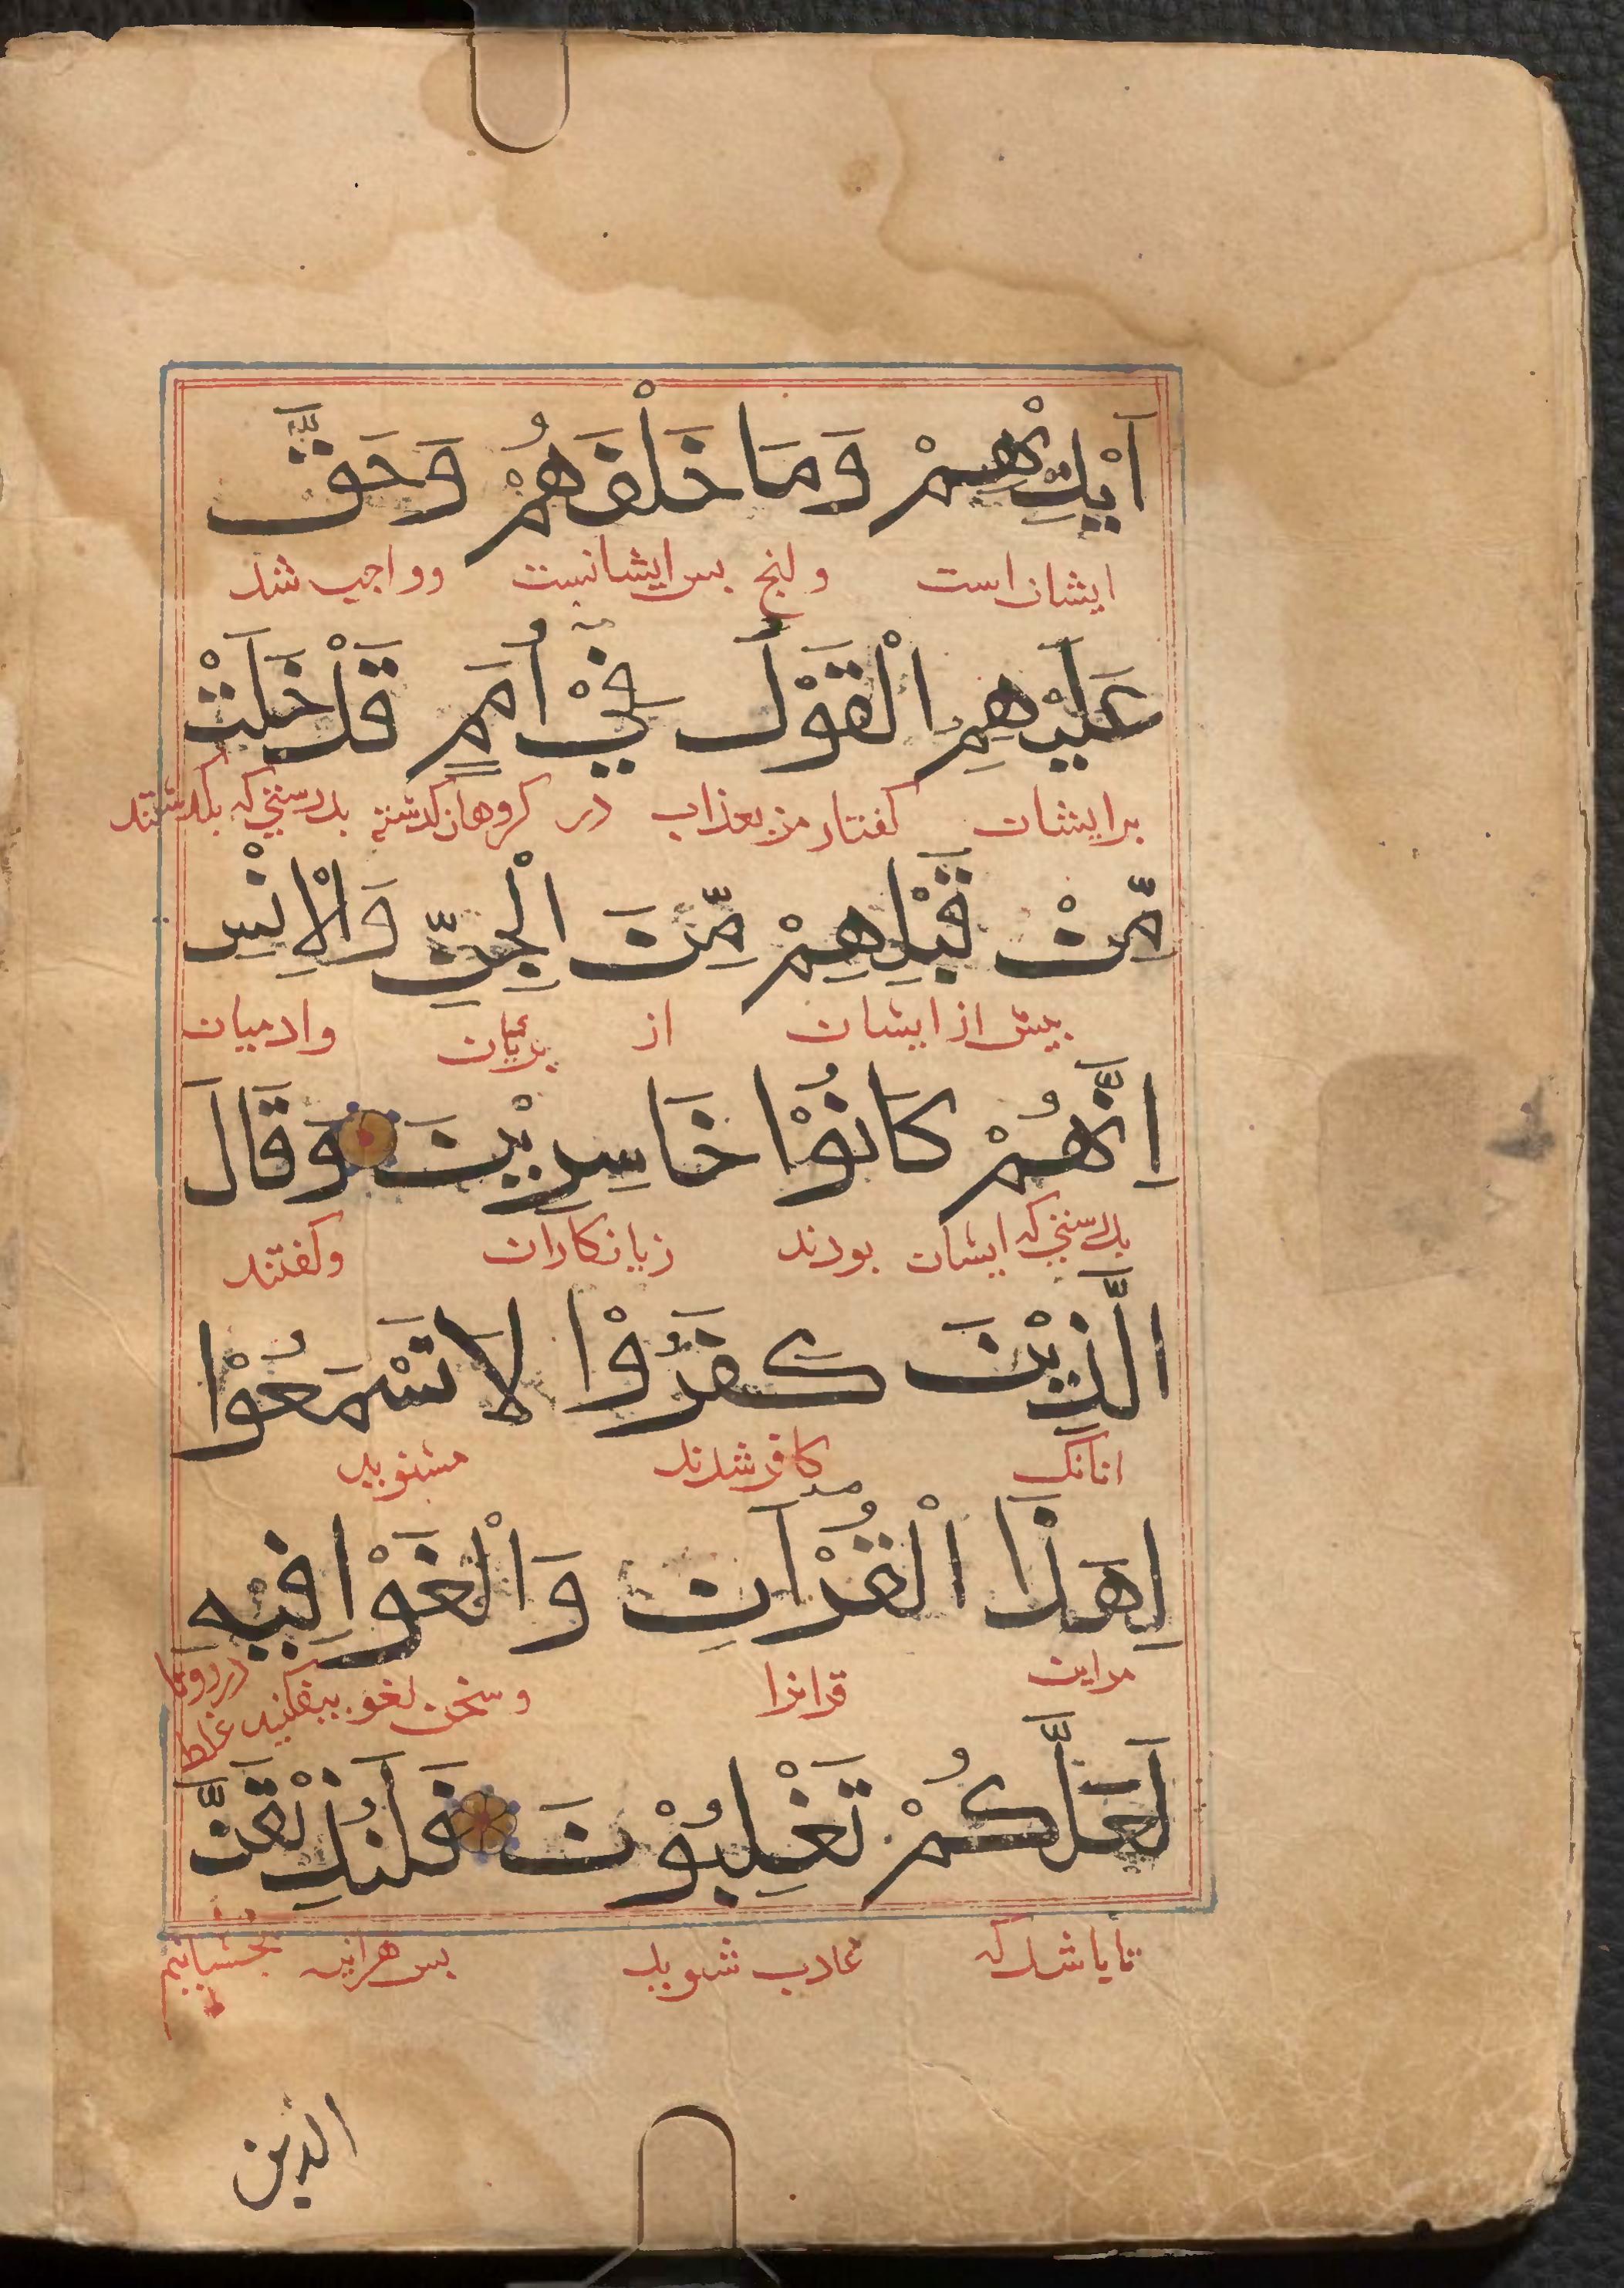 اَيْدِيْهِمْ وَمَا خَلْفَهُمْ وَحَقَّ
ایشان است ولنج بس ایشانست وواجب شد
عَلَيْهِمِ الْقَوْلُ فِيْ اُمَمٍ قَدْ خَلَتْ
برایشان کفتار من بعذاب در کروهان کذشته بدرستی که بکذشتند
مِّنْ قَبْلِهِمْ مِّنَ الْجِنِّ وَالْاِنْسِ
بیش از ایشان از بریان وادمیان
اِنَّهُمْ كَانُوْا خَاسِرِيْنَ وَقَالَ
بدرستی که ایشان بودند زیانکاران وکفتند
الَّذِيْنَ كَفَرُوْا لَا تَسْمَعُوْا
انانک کافر شدند مشنوید
لِهَذَا الْقُرْآنِ وَالْغَوْا فِيْهِ
مراین قرانرا وسخن لغو بیفکنید غلط در روی ما
لَعَلَّكُمْ تَغْلِبُوْنَ فَلَنُذِيْقَنَّ
تا باشد که غالب شوید بس هراینه بجشانیم
الذین